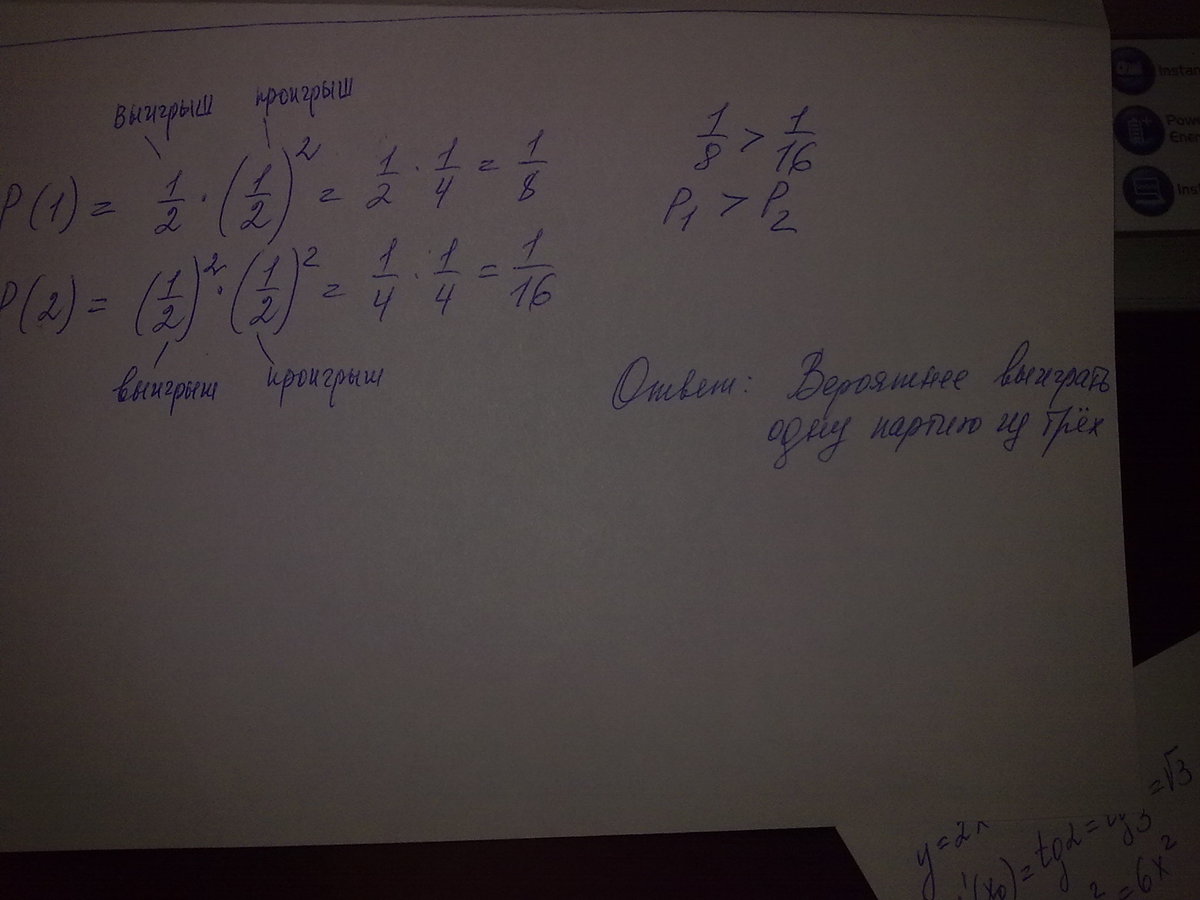 выигрыш проигрыш
P(1) = 1/2 · (1/2)² = 1/2 · 1/4 = 1/8
P(2) = (1/2)² · (1/2)² = 1/4 · 1/4 = 1/16
выигрыш проигрыш
1/8 > 1/16
P₁ > P₂
Ответ: Вероятнее выиграть
одну партию из трёх
y = 2x
(x₀) = tg2 = = √3
= 6x²